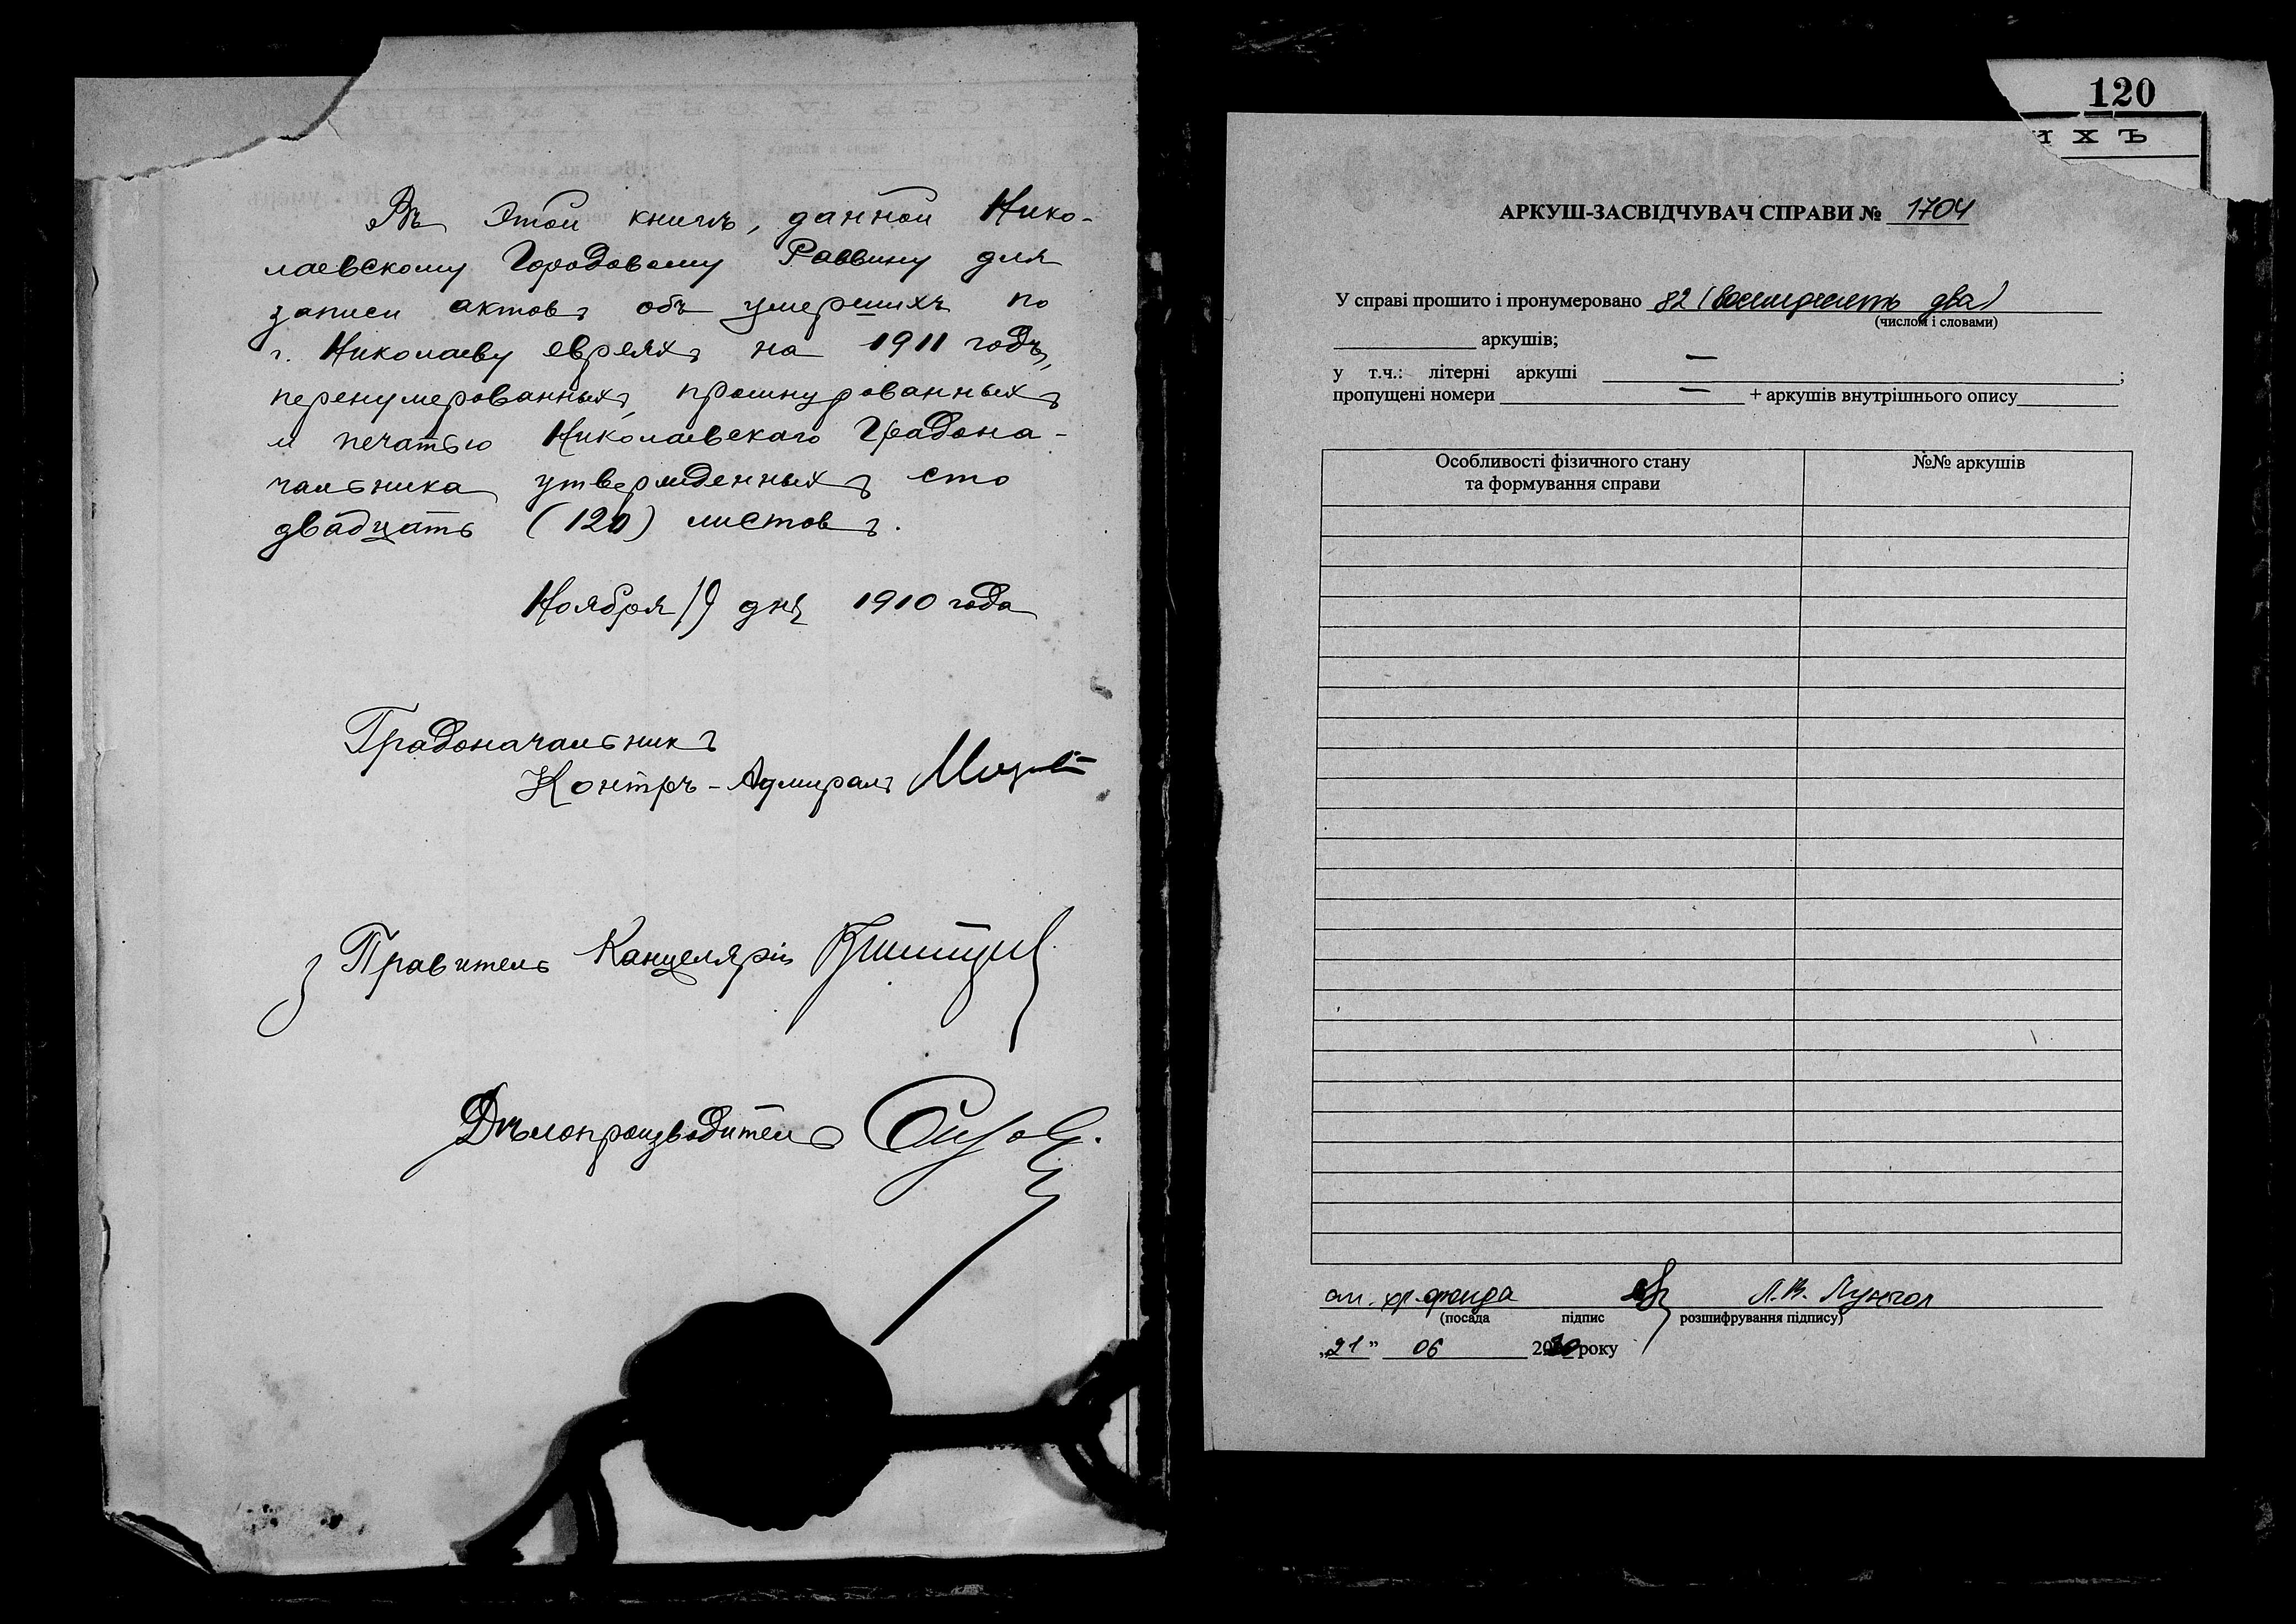 Въ этой книгѣ, данной Нико-
лаевскому Городовому Раввину для
записи актовъ объ умершихъ по
г. Николаеву евреяхъ на 1911 годъ,
перенумерованныхъ, прошнурованныхъ
и печатью Николаевскаго Градона-
чальника утвержденныхъ сто
двадцать (120) листовъ.
Ноября 19 дня 1910 года
Градоначальникъ
Контръ-Адмиралъ
Правитель Канцеляріи
Дѣлопроизводитель
120
ихъ
АРКУШ-ЗАСВІДЧУВАЧ СПРАВИ № 1704
У справі прошито і пронумеровано 82 (восемдесять два)
(числом і словами)
аркушів;
у т.ч.: літерні аркуші — ;
пропущені номери — + аркушів внутрішнього опису
Особливості фізичного стану
та формування справи
№№ аркушів
хр. фонда Л.В.
(посада підпис розшифрування підпису)
„21” 06 20 року